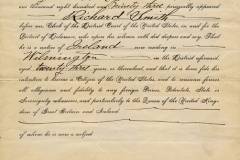 one thousand eight hundred and Ninety three personally appeared
Richard Smith
before me, Clerk of the District Court of the United States, in and for the
District of Delaware, who upon his solemn oath did depose and say, That
he is a native of Ireland now residing in
Wilmington in the District aforesaid
aged twenty three years, or thereabout, and that it is bona fide his
intention to become a Citizen of the United States, and to renounce forever
all allegiance and fidelity to any foreign Prince, Potentate, State or
Sovereignty whatever, and particularly to the Queen of the United King-
dom of Great Britain and Ireland
of whom he is now a subject